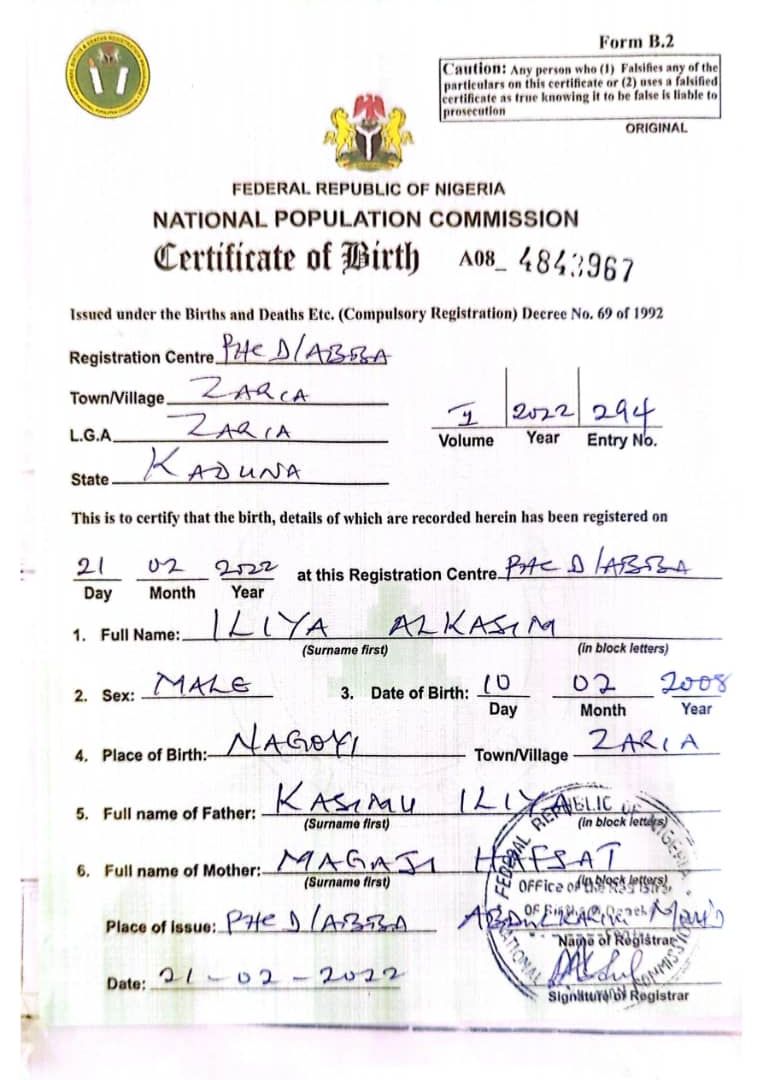 Form B.2
Caution: Any person who (1) Falsifies any of the
particulars on this certificate or (2) uses a falsified
certificate as true knowing it to be false is liable to
prosecution
ORIGINAL
FEDERAL REPUBLIC OF NIGERIA
NATIONAL POPULATION COMMISSION
Certificate of Birth A08_ 4843967
Issued under the Births and Deaths Etc. (Compulsory Registration) Decree No. 69 of 1992
Registration Centre PHC D/ABBA
Town/Village ZARIA
L.G.A ZARIA
2022 294
Volume Year Entry No.
State KADUNA
This is to certify that the birth, details of which are recorded herein has been registered on
21 02 2022 at this Registration Centre PHC D/ABBA
Day Month Year
1. Full Name: ILIYA ALKASIM
(Surname first) (in block letters)
2. Sex: MALE 3. Date of Birth: 10 02 2008
Day Month Year
4. Place of Birth: NAGOYI Town/Village ZARIA
5. Full name of Father: KASIMU ILIYA
(Surname first) (in block letters)
6. Full name of Mother: MAGAJI HAFSAT
(Surname first) (in block letters)
Place of Issue: PHC D/ABBA
Name of Registrar
Date: 21-02-2022
Signature of Registrar